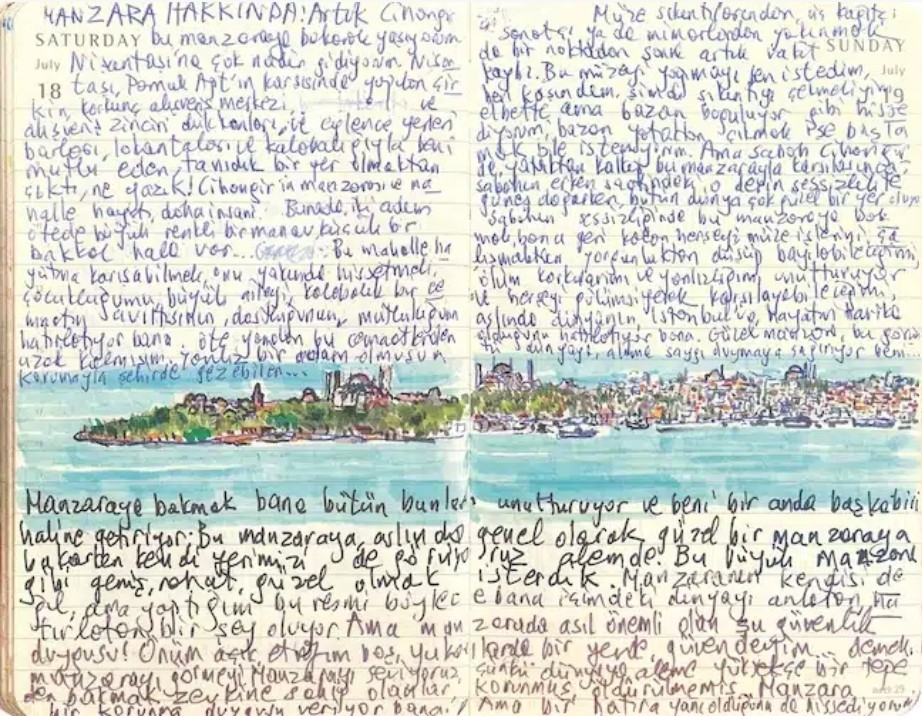 MANZARA HAKKINDA: Artık Cihangir
SATURDAY bu manzaraya bakarak yaşıyorum
July Nişantaşı'na çok nadir gidiyorum. Nişan
18 taşı, Pamuk Apt'ın karşısında yapılan çir
kin korkunç alışveriş merkezi ve
alışveriş zinciri dükkanları, ve eğlence yerleri
barları, lokantaları ve kalabalığıyla beni
mutlu eden, tanıdık bir yer olmaktan
çıktı, ne yazık! Cihangir'in manzarası ve ma
halle hayatı, daha insani. Burada, iki adım
ötede büyülü renkli bir manav küçük bir
bakkal hala var... Bu mahalle ha
yatına karışabilmek, onu yakında hissetmek,
çocukluğumu, büyük aileyi, kalabalık bir ce
maatin cıvıltısının, dostluğunun, mutluluğun
hatırlatıyor bana. Öte yandan bu cemaatlerden
uzak kalmışım, yalnız bir adam olmuşum
korumayla şehirde gezebilen...
SUNDAY
July
19
Müze sıkıntılarından, üç kağıtçı
sanatçı ya da mimarlardan yakınmak
da bir noktadan sonra artık vakit
kaybı. Bu müzeyi yapmayı ben istedim,
ben koşundum, şimdi sıkıntıyı çekmeliyim
elbette ama bazan boğuluyor gibi hisse
diyorum, bazan yataktan çıkmak işe başla
mak bile istemiyorum. Ama sabah Cihangir
de, yataktan kalkıp bu manzarayla karşılaşınca,
sabahın erken saatindeki o derin sessizlikte
güneş doğarken, bütün dünya çok güzel bir yer oluyor
sabahın sessizliğinde bu manzaraya bak
mak, bana geri kalan herşeyi müze işlerini, ça
lışmaktan yorgunluktan düşüp bayılabileceğimi,
ölüm korkularımı ve yalnızlığımı unutturuyor
ve herşeyi gülümseyerek karşılayabileceğimi,
aslında dünyanın, İstanbul'un, hayatın harika
olduğunu hatırlatıyor bana. Güzel manzara, bu görün
dünyayı, aleme saygı duymaya çağırıyor beni...
Manzaraya bakmak bana bütün bunları unutturuyor ve beni bir anda başka biri
haline getiriyor. Bu manzaraya, aslında genel olarak güzel bir manzaraya
bakarken kendi yerimizi de görürüz alemde. Bu büyük manzara
gibi geniş, rahat, güzel olmak isterdik. Manzaranın kendisi de
ğil, ama yaptığım bu resmi böylece bana içimdeki dünyayı anlatan, ha
tırlatan bir şey oluyor. Ama manzarada asıl önemli olan şu güvenlik
duygusu! Önüm açık etrafım boş, yukarılarda bir yerde, güvendeyim demek.
manzarayı görmeyi, Manzarayı seviyoruz, çünkü dünyaya, aleme yüksekçe bir tepe
den bakmak zevkine sahip olanlar, korunmuş, öldürülmemiş. Manzara
bir korunma duygusu veriyor bana! Ama bir hatıra yanı olduğunu da hissediyorum